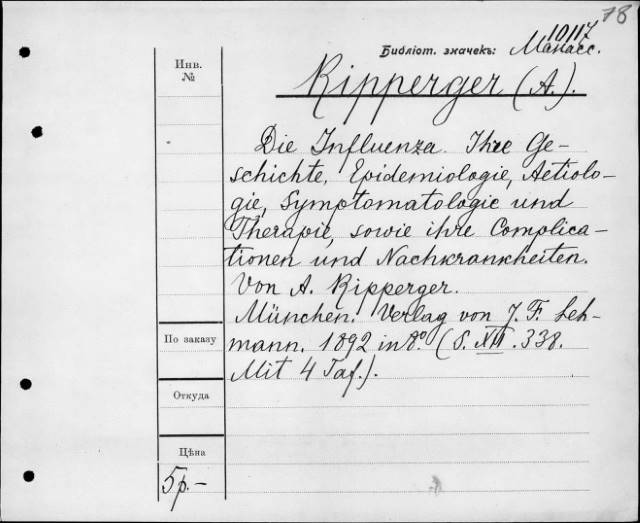 78
10117
Библіот. значекъ: Манасс.
Инв.
№
Ripperger (A.).
Die Influenza. Ihre Ge-
schichte, Epidemiologie, Aetiolo-
gie, Symptomatologie und
Therapie, sowie ihre Complica-
tionen und Nachkrankheiten.
Von A. Ripperger.
München. Verlag von J. F. Leh-
mann. 1892 in 8º. (S. XII. 338.
Mit 4 Taf.).
По заказу
Откуда
Цѣна
5р.-